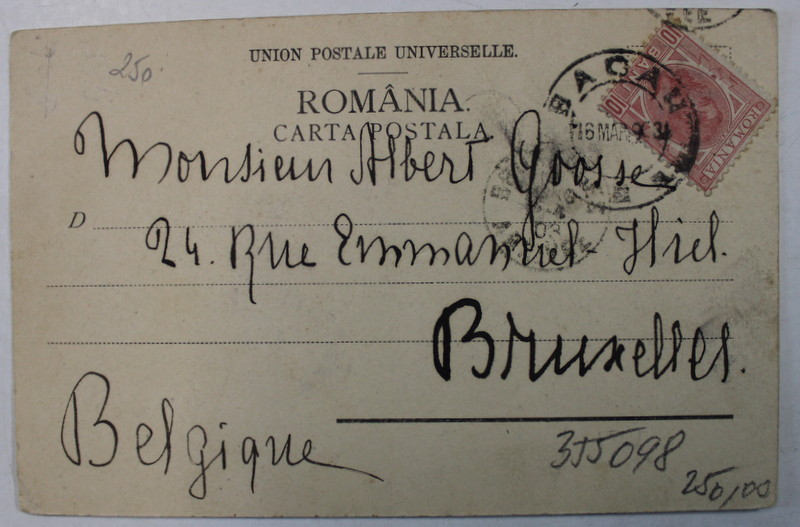 250.
UNION POSTALE UNIVERSELLE.
ROMÂNIA.
CARTA POSTALA
BACAU
16 MAR
10 BANI 10
ROMANIA
Monsieur Albert Goosse
D
24. Rue Emmanuel-Hiel.
Bruxelles.
Belgique
355098
250,00